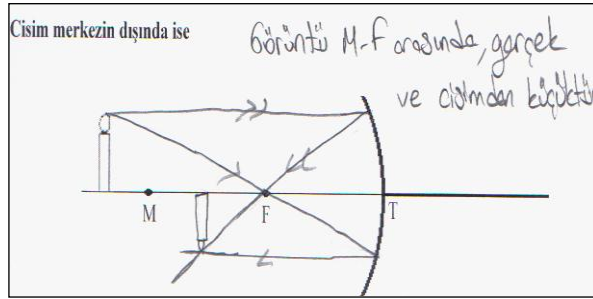 Cisim merkezin dışında ise
Görüntü M-F arasında, gerçek
ve cisimden küçüktür
M
F
T